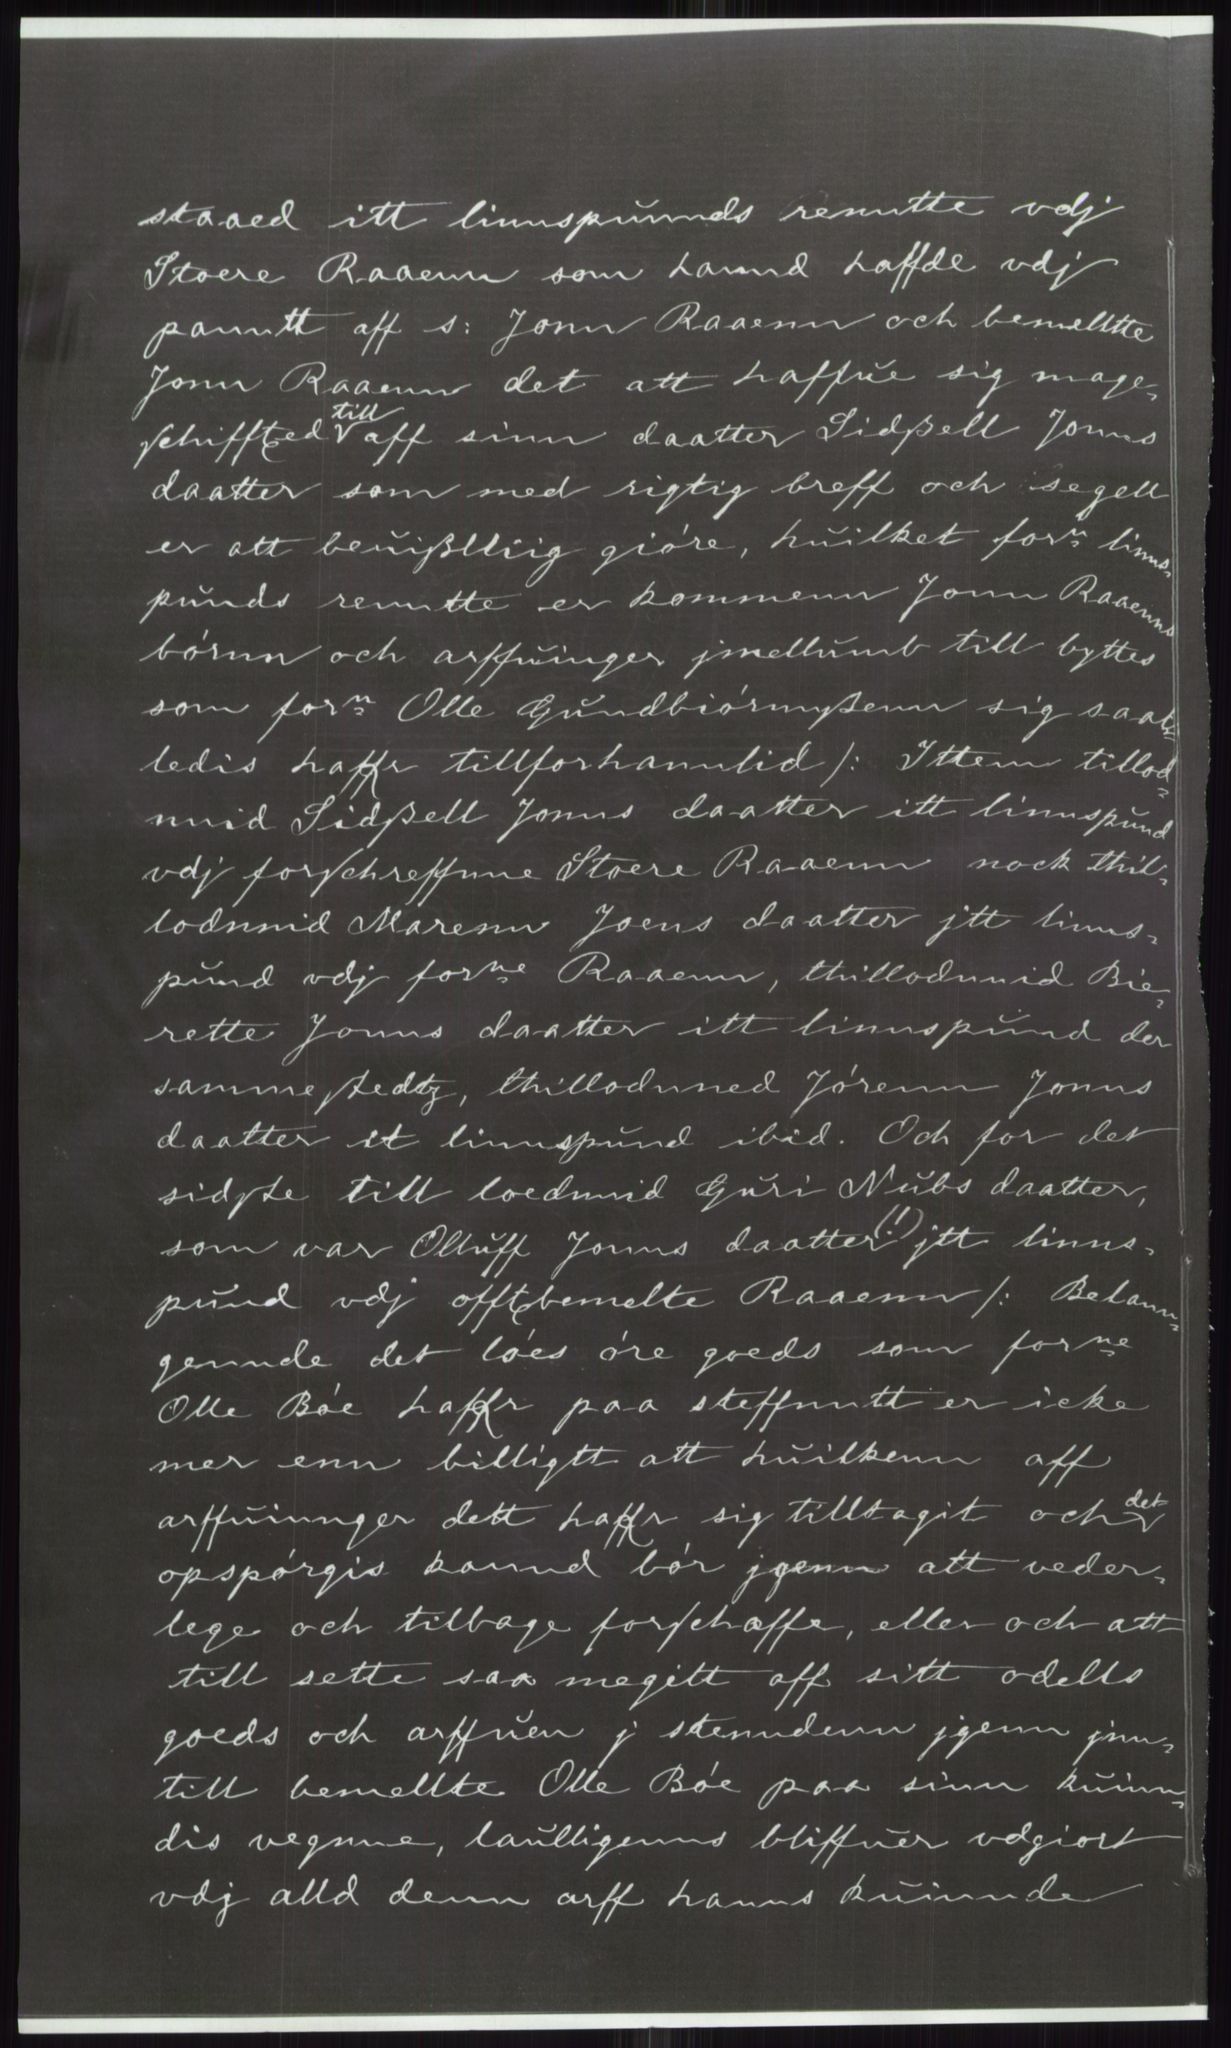 staaed itt linnspŭnnds renntte vdj
Stoere Raaenn som hannd haffde vdj
panntt aff s: Jonn Raaenn och bemelltte
Jonn Raaenn det att haffŭe sig mage-
schiffted till aff sinn daatter Sidßell Jonns
daatter som med rigtig breff och segell
er att beŭißlliig giöre, hŭilket forn linns-
pŭnds renntte er kommenn Jonn Raaenns
börnn och arffŭinger jmellŭmb till byttes
som forn Olle Gŭndbiörnnßenn sig saal-
ledis haffr tillforhanntlid /: Ittem tillod-
nnid Sidßell Jonns daatter itt linnspŭnd
vdj forschreffnne Stoere Raaenn nock thil-
lodnnid Marenn Joens daatter jtt linns-
pŭnd vdj forne Raaenn, thillodnnid Bie-
rette Jonns daatter itt linnspŭnd der
sammestedtz, thillodnned Jörenn Jonns
daatter it linnspŭnd ibid. Och for det
sidste till loednnid Gŭri Nŭbs daatter,
som var Ollŭff Jonns daatter (!) jtt linns-
pŭnd vdj offtbemelte Raaenn /: Belann-
gennde det löes öre goeds som forne
Olle Böe haffr paa steffnntt er icke
mer enn billigtt att hŭilkenn aff
arffŭinnger dett haffr sig tilltagit och det
opspörgis kannd bör jgenn att veder-
lege och tilbage forschaffe, eller och att
till sette saa megitt aff sitt odells
goeds och arffŭen j stenndenn jgenn jnn-
till bemellte Olle Böe paa sinn kŭinn-
dis vegnne, laŭlligenns bliffŭer vdgiort
vdj alld denn arff hanns kŭinnde